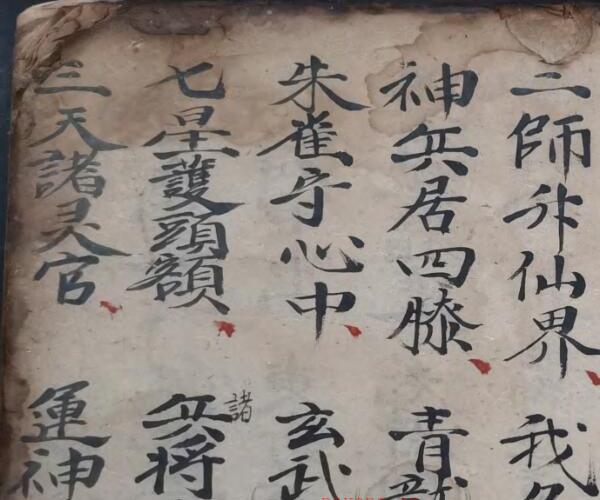 二師升仙界 我
神兵居四膝 青龍
朱雀守心中 玄武
七星護頭額 諸兵将
三天諸灵官 運神